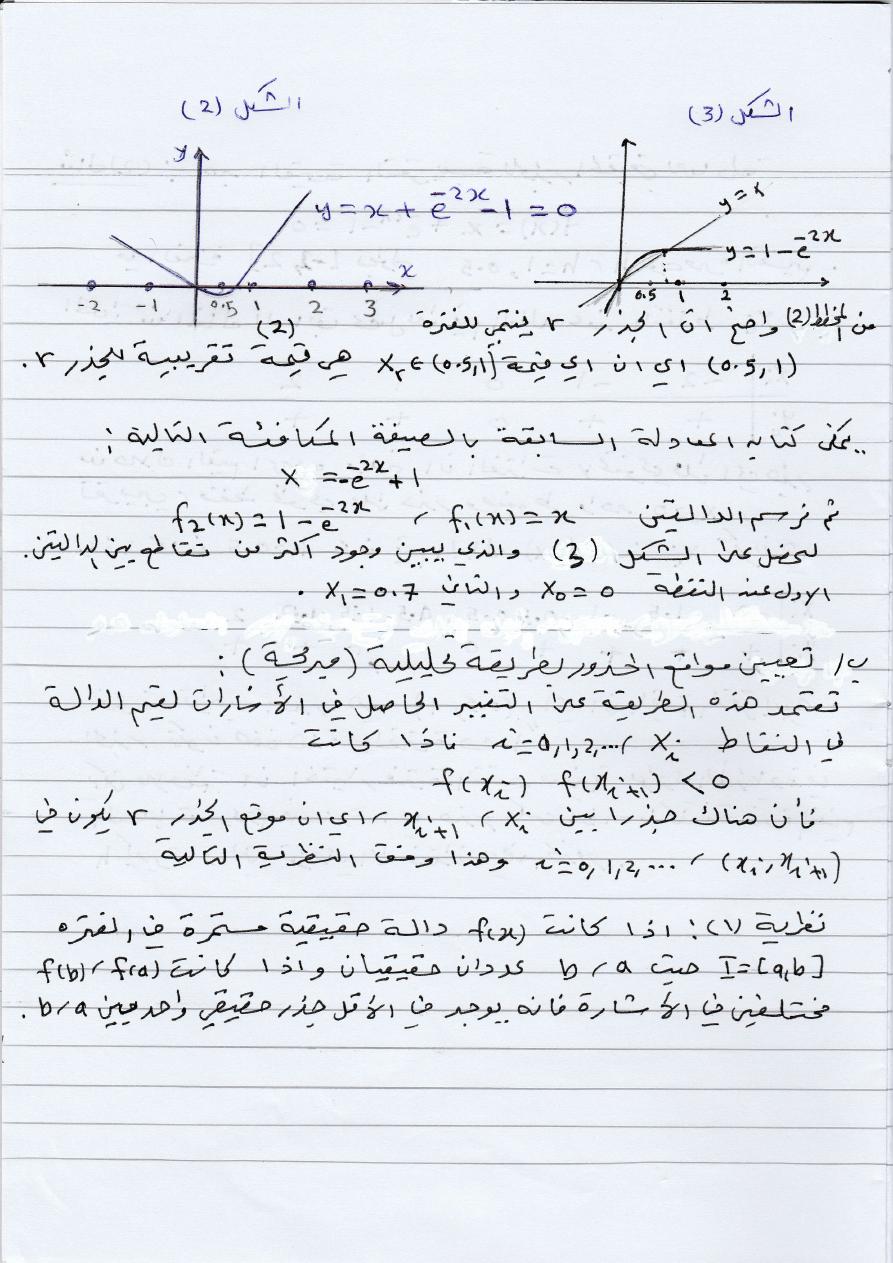 الشكل (3)
الشكل (2)
y
y = x + e^-2x - 1 = 0
x
-2 -1 0.5 1 2 3
(2)
y = x
y = 1 - e^-2x
0.5 1 2
من المخطط (2) واضح ان الجذر r ينتمي للفترة
(0.5, 1) اي ان اي قيمة x_r ∈ (0.5, 1) هي قيمة تقريبية للجذر r.
.. يمكن كتابه المعادلة السابقة بالصيغة المكافئة التالية :
x = -e^-2x + 1
ثم نرسم الدالتين f_1(x) = x , f_2(x) = 1 - e^-2x
لنحصل على الشكل (3) والذي يبين وجود اكثر من تقاطع بين الدالتين.
الاول عند النقطة x_0 = 0 والثاني x_1 = 0.7 .
ب/ تعيين مواقع الجذور بطريقة تحليلية (مبرمجة) :
تعتمد هذه الطريقة على التغيير الحاصل في الأشارات لقيم الدالة
في النقاط x_i , i = 0, 1, 2, ... فاذا كانت
f(x_i) f(x_i+1) < 0
فأن هناك جذرا بين x_i , x_i+1 , اي ان موقع الجذر r يكون في
(x_i, x_i+1) , i = 0, 1, 2, ... وهذا وفق النظرية التالية
نظرية (1) : اذا كانت f(x) دالة حقيقية مستمرة في الفتره
I = [a, b] حيث a , b عددان حقيقيان واذا كانت f(a) , f(b)
مختلفين في الأشارة فانه يوجد في الأقل جذر حقيقي واحد بين a , b .